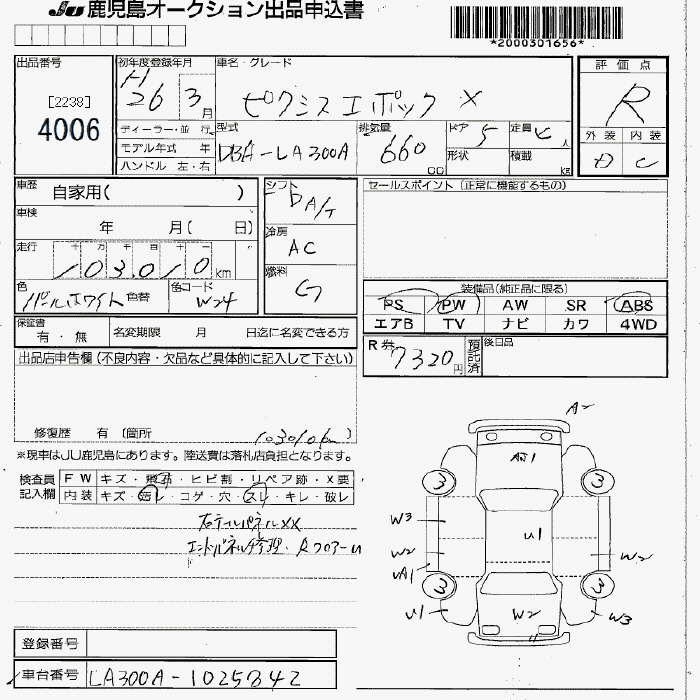 JU 鹿児島オークション出品申込書
*2000301656*
出品番号
[2238]
4006
初年度登録年月
H
26 3月
車名・グレード
ピクシス エポック X
評価点
R
外装 内装
D C
ディーラー・並行
モデル年式 年
ハンドル 左・右
型式
DBA-LA300A
排気量
660 cc
ドア 5
定員 人
形状
積載 kg
車歴
自家用( )
車検
年 月( 日)
走行
十 万 千 百 十 一
103010 km
色
パールホワイト 色替
色コード
W24
シフト
DA/T
冷房
AC
燃料
G
セールスポイント (正常に機能するもの)
装備品(純正品に限る)
PS PW AW SR ABS
エアB TV ナビ カワ 4WD
保証書
有・無
名変期限 月 日迄に名変できる方
R券
7320円
預託済
後日品
出品店申告欄 (不良内容・欠品など具体的に記入して下さい)
修復歴 有 〔箇所
103010km
※現車はJU鹿児島にあります。陸送費は落札店負担となります。
検査員記入欄
FW キズ・飛石・ヒビ割・リペア跡・X要
内装 キズ・汚レ・コゲ・穴・スレ・キレ・破レ
右テールパネルXX
エンドパネル修理・Rフロアー
A2
AU1
3 3
W3
U1
W2 W2
UA1
3 3
U1 W2 W3
登録番号
車台番号 LA300A-1025842